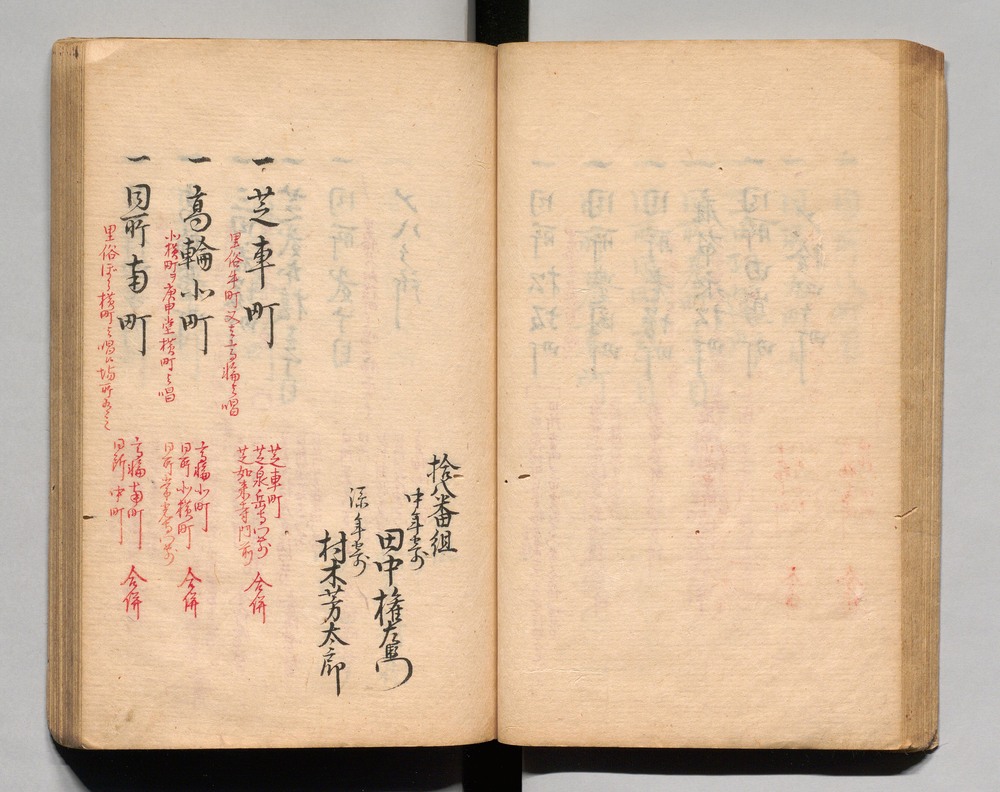 拾八番組
中年寄
田中権左衛門
添年寄
村木芳太郎
一 芝車町
里俗車町又は高輪と唱
芝車町
芝泉岳寺門前
芝如来寺門前
合併
一 高輪小町
小横町ヲ庚申堂横町と唱
高輪小町
同所小横町
同所常光寺門前
合併
一 同所南町
里俗 横町と唱候場所
高輪南町
同所中町
合併